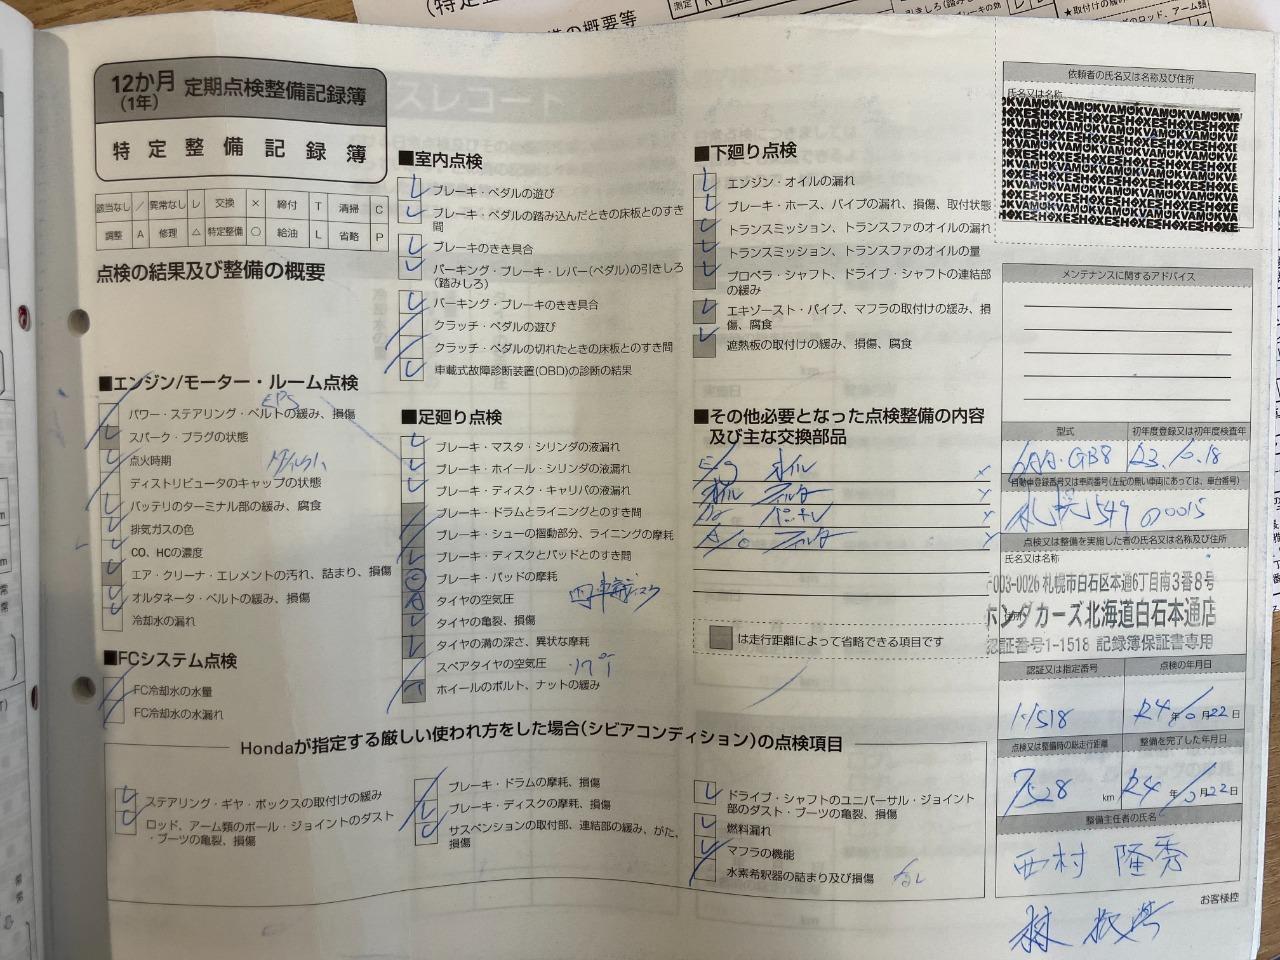 12か月
(1年)
定期点検整備記録簿
特定整備記録簿
該当なし / 異常なし レ 交換 × 締付 T 清掃 C
調整 A 修理 △ 特定整備 ○ 給油 L 省略 P
点検の結果及び整備の概要
■エンジン/モーター・ルーム点検
EPS
パワー・ステアリング・ベルトの緩み、損傷
スパーク・プラグの状態
点火時期
ディストリビュータのキャップの状態
バッテリのターミナル部の緩み、腐食
排気ガスの色
CO、HCの濃度
エア・クリーナ・エレメントの汚れ、詰まり、損傷
オルタネータ・ベルトの緩み、損傷
冷却水の漏れ
■FCシステム点検
FC冷却水の水量
FC冷却水の水漏れ
■室内点検
ブレーキ・ペダルの遊び
ブレーキ・ペダルの踏み込んだときの床板とのすき
間
ブレーキのきき具合
パーキング・ブレーキ・レバー(ペダル)の引きしろ
(踏みしろ)
パーキング・ブレーキのきき具合
クラッチ・ペダルの遊び
クラッチ・ペダルの切れたときの床板とのすき間
車載式故障診断装置(OBD)の診断の結果
■足廻り点検
ブレーキ・マスタ・シリンダの液漏れ
ブレーキ・ホイール・シリンダの液漏れ
ブレーキ・ディスク・キャリパの液漏れ
ブレーキ・ドラムとライニングとのすき間
ブレーキ・シューの摺動部分、ライニングの摩耗
ブレーキ・ディスクとパッドとのすき間
ブレーキ・パッドの摩耗
タイヤの空気圧
タイヤの亀裂、損傷
タイヤの溝の深さ、異状な摩耗
スペアタイヤの空気圧
ホイールのボルト、ナットの緩み
■下廻り点検
エンジン・オイルの漏れ
ブレーキ・ホース、パイプの漏れ、損傷、取付状態
トランスミッション、トランスファのオイルの漏れ
トランスミッション、トランスファのオイルの量
プロペラ・シャフト、ドライブ・シャフトの連結部
の緩み
エキゾースト・パイプ、マフラの取付けの緩み、損
傷、腐食
遮熱板の取付けの緩み、損傷、腐食
■その他必要となった点検整備の内容
及び主な交換部品
E/g オイル ×
オイル フィルタ ×
A/C フィルタ ×
は走行距離によって省略できる項目です
Hondaが指定する厳しい使われ方をした場合(シビアコンディション)の点検項目
ステアリング・ギヤ・ボックスの取付けの緩み
ロッド、アーム類のボール・ジョイントのダスト
・ブーツの亀裂、損傷
ブレーキ・ドラムの摩耗、損傷
ブレーキ・ディスクの摩耗、損傷
サスペンションの取付部、連結部の緩み、がた、
損傷
ドライブ・シャフトのユニバーサル・ジョイント
部のダスト・ブーツの亀裂、損傷
燃料漏れ
マフラの機能
水素希釈器の詰まり及び損傷
なし
依頼者の氏名又は名称及び住所
氏名又は名称
メンテナンスに関するアドバイス
型式
初年度登録又は初年度検査年
6AA-GB8
R3.6.18
自動車登録番号又は車両番号(左記の無い車両にあっては、車台番号)
札幌 549 の 0015
点検又は整備を実施した者の氏名又は名称及び住所
氏名又は名称
〒003-0026 札幌市白石区本通6丁目南3番8号
ホンダカーズ北海道白石本通店
認証番号1-1518 記録簿保証書専用
認証又は指定番号
点検の年月日
1-1518
R4年10月22日
点検又は整備時の総走行距離
整備を完了した年月日
km
R4年10月22日
整備主任者の氏名
西村 隆秀
お客様控